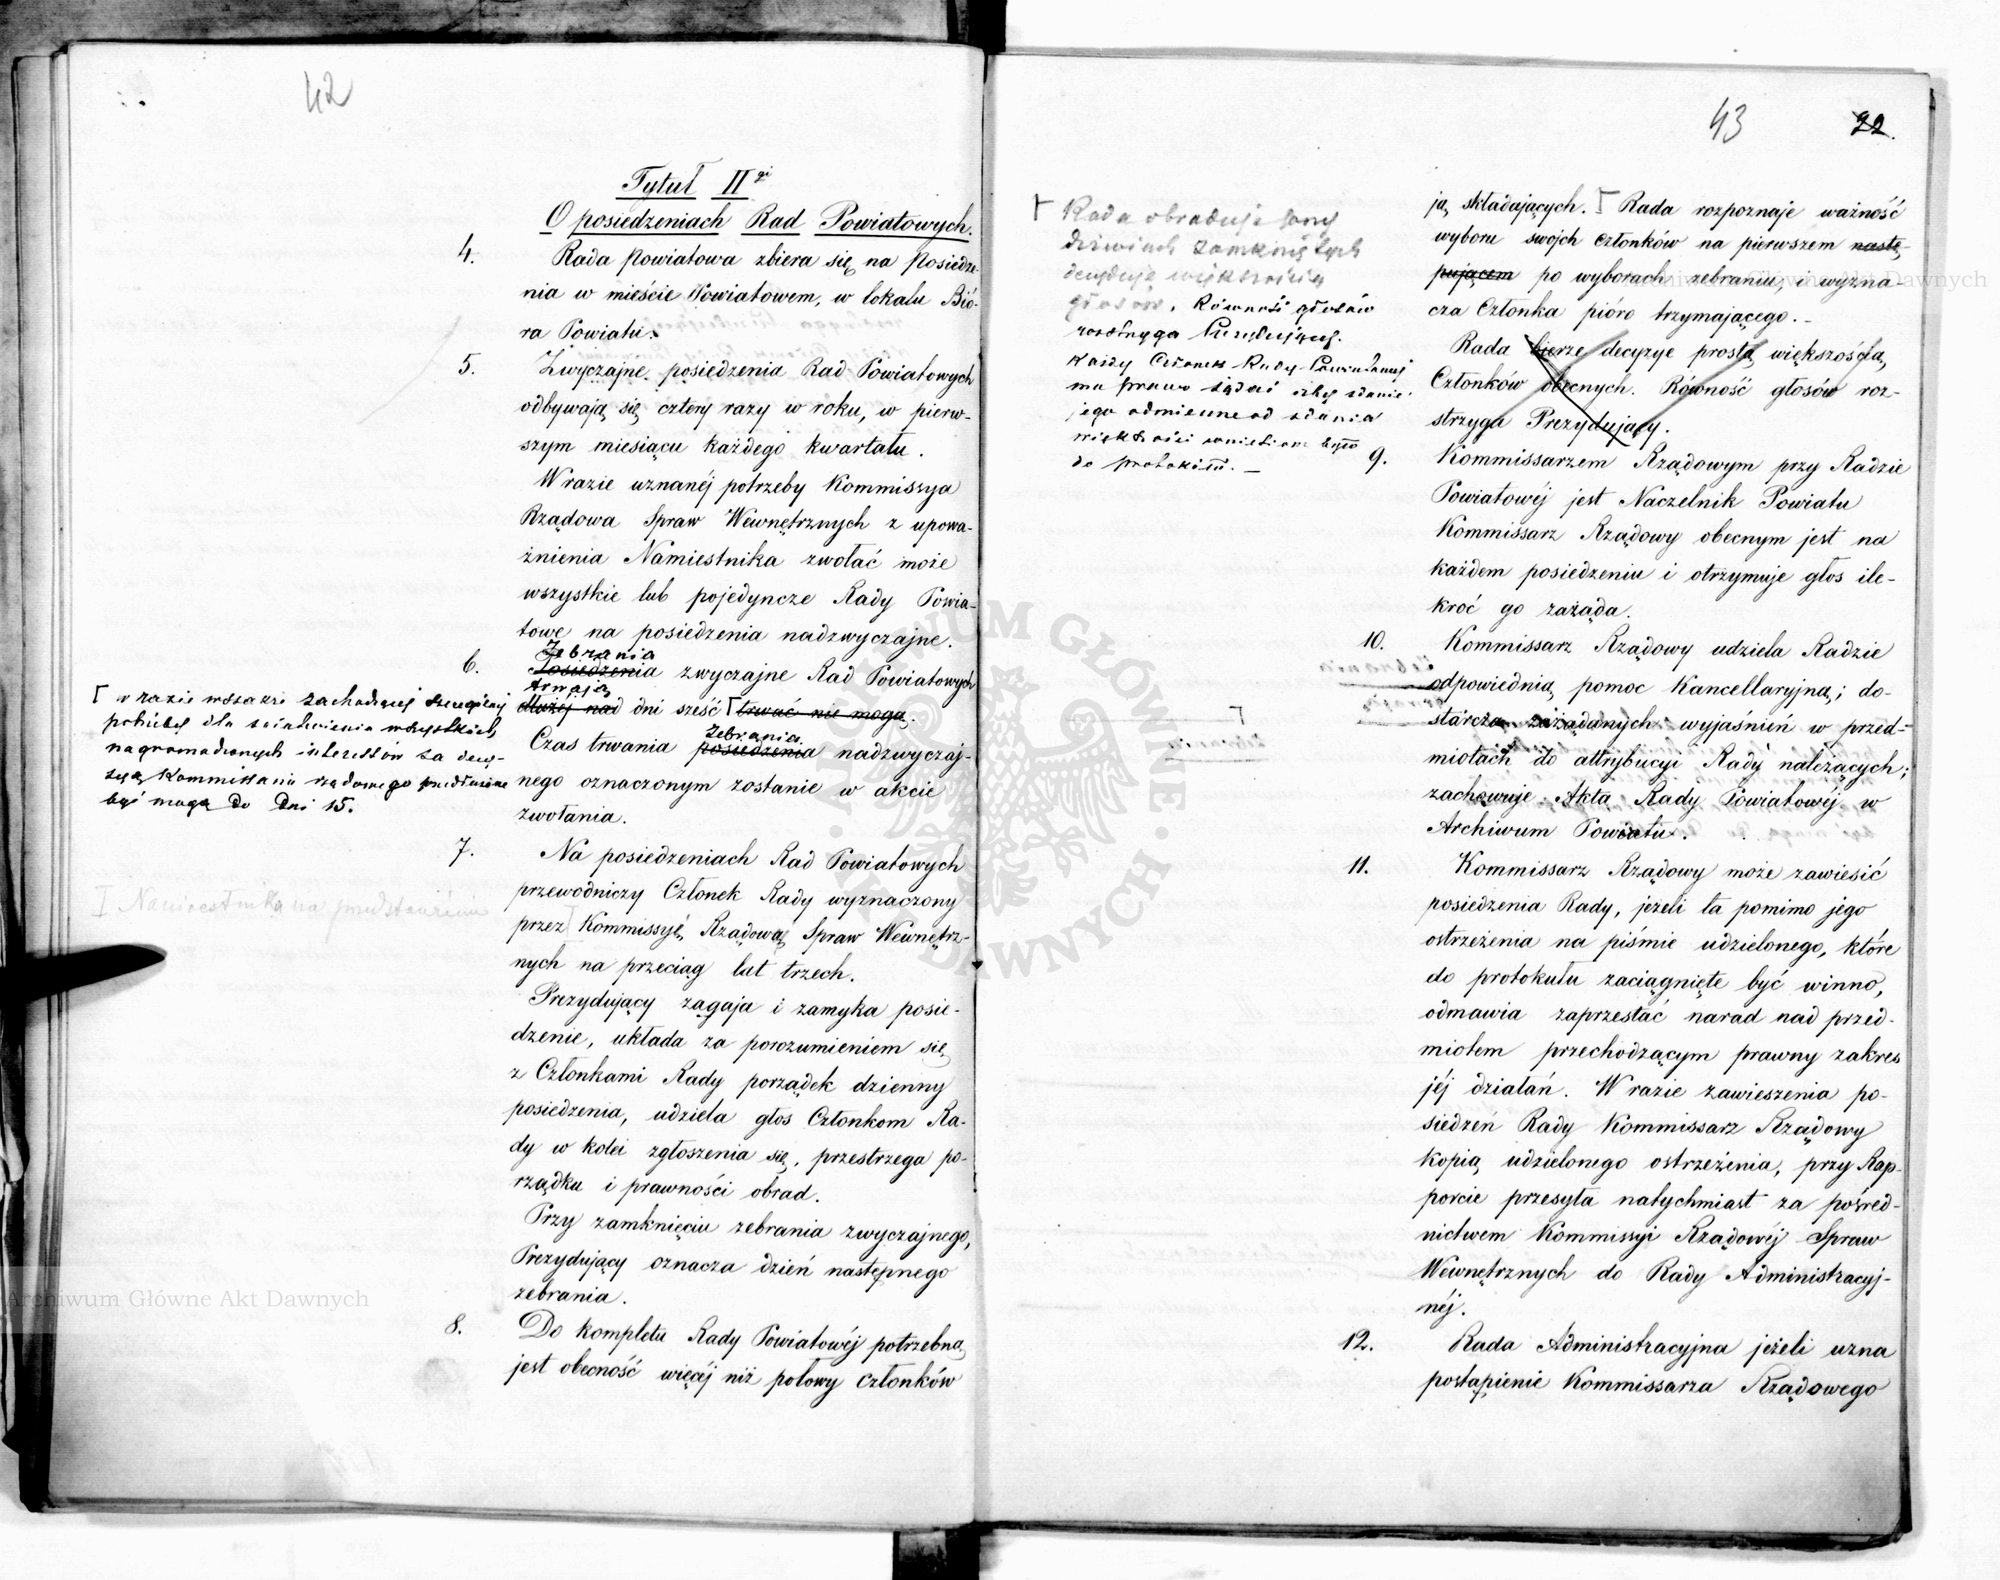 42
Tytuł II gi
O posiedzeniach Rad Powiatowych.
4. Rada Powiatowa zbiera się na Posiedze-
nia w mieście Powiatowem, w lokalu Bió-
ra Powiatu.
5. Zwyczajne posiedzenia Rad Powiatowych
odbywają się cztery razy w roku, w pierw-
szym miesiącu każdego kwartału.
W razie uznanéj potrzeby Kommissya
Rządowa Spraw Wewnętrznych z upowa-
żnienia Namiestnika zwołać może
wszystkie lub pojedyncze Rady Powia-
towe na posiedzenia nadzwyczajne.
Zebrania
6. Posiedzenia zwyczajne Rad Powiatowych
trwają
dłużéj nad dni sześć trwać nie mogą.
Zebrania
Czas trwania posiedzenia nadzwyczaj-
nego oznaczonym zostanie w akcie
zwołania.
w razie wszakże zachodzącej szczególnej
potrzeby dla załatwienia wszystkich
nagromadzonych interessów za decy-
zyą Kommissarza rządowego przedłużone
być mogą do dni 15.
7. Na posiedzeniach Rad Powiatowych
przewodniczy Członek Rady wyznaczony
przez Kommissyę Rządową Spraw Wewnętrz-
nych na przeciąg lat trzech.
Namiestnika na przedstawienie
Prezydujący zagaja i zamyka posie-
dzenie, układa za porozumieniem się
z Członkami Rady porządek dzienny
posiedzenia, udziela głos Członkom Ra-
dy w kolei zgłoszenia się, przestrzega po-
rządku i prawności obrad.
Przy zamknięciu zebrania zwyczajnego,
Prezydujący oznacza dzień następnego
zebrania.
8. Do kompletu Rady Powiatowéj potrzebną
jest obecność więcéj niż połowy członków
43 22.
ją składających. Rada rozpoznaje ważność
wyboru swojch członków na pierwszem nastę-
pującem po wyborach zebraniu, i wyzna-
cza Członka pióro trzymającego.
Rada bierze decyzye prostą większością
Członków obecnych. Równość głosów roz-
strzyga Prezydujący.
Rada obraduje przy
drzwiach zamkniętych
decyduje większością
głosów. Równość głosów
rozstrzyga Prezydujący.
Każdy Członek Rady Powiatowej
ma prawo żądać ażeby zdanie
jego odmienne od zdania
większości wniesiono było
do protokółu.
9. Kommissarzem Rządowym przy Radzie
Powiatowéj jest Naczelnik Powiatu
Kommissarz Rządowy obecnym jest na
każdem posiedzeniu i otrzymuje głos ile-
kroć go zażąda.
10. Kommissarz Rządowy udziela Radzie
odpowiednią pomoc Kancellaryjną; do-
starcza zażądanych wyjaśnień w przed-
miotach do attrybucyi Rady należących;
zachowuje Akta Rady Powiatowéj w
Archiwum Powiatu.
11. Kommissarz Rządowy może zawiesić
posiedzenia Rady, jeżeli ta pomimo jego
ostrzeżenia na piśmie udzielonego, które
do protokułu zaciągnięte być winno,
odmawia zaprzestać narad nad przed-
miotem przechodzącym prawny zakres
jéj działań. W razie zawieszenia po-
siedzeń Rady Kommissarz Rządowy
kopią udzielonego ostrzeżenia, przy Rap-
porcie przesyła natychmiast za pośred-
nictwem Kommissyi Rządowéj Spraw
Wewnętrznych do Rady Administracyj-
néj.
12. Rada Administracyjna jeżeli uzna
postąpienie Kommissarza Rządowego
ARCHIWUM GŁÓWNE AKT DAWNYCH
Archiwum Główne Akt Dawnych
Archiwum Główne Akt Dawnych